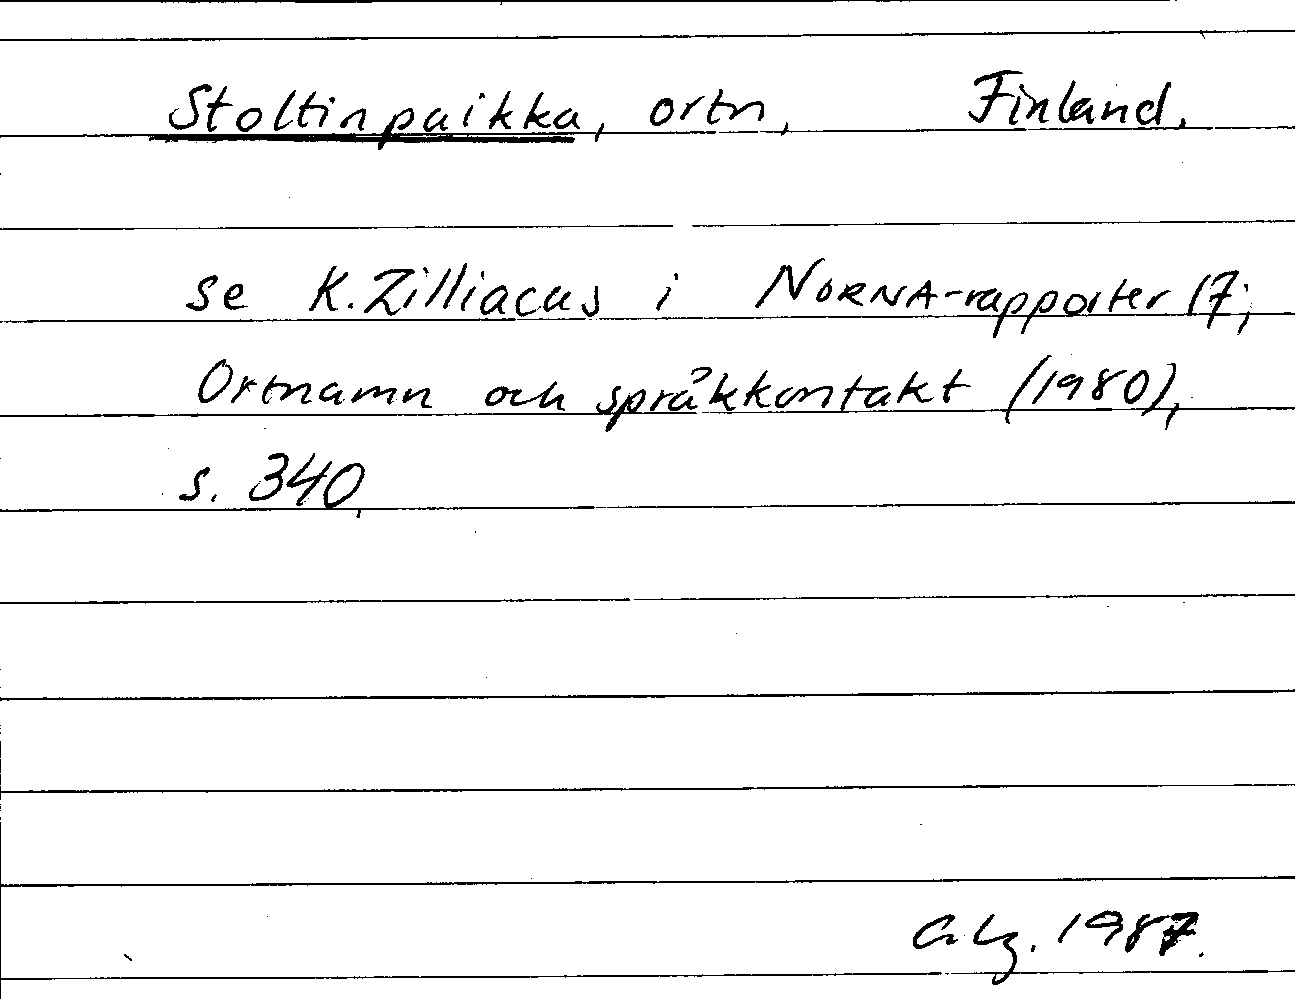 Stoltinpaikka, ortn, Finland.
se K. Zilliacus i NORNA-rapporter 17;
Ortnamn och språkkontakt (1980),
s. 340.
1987.